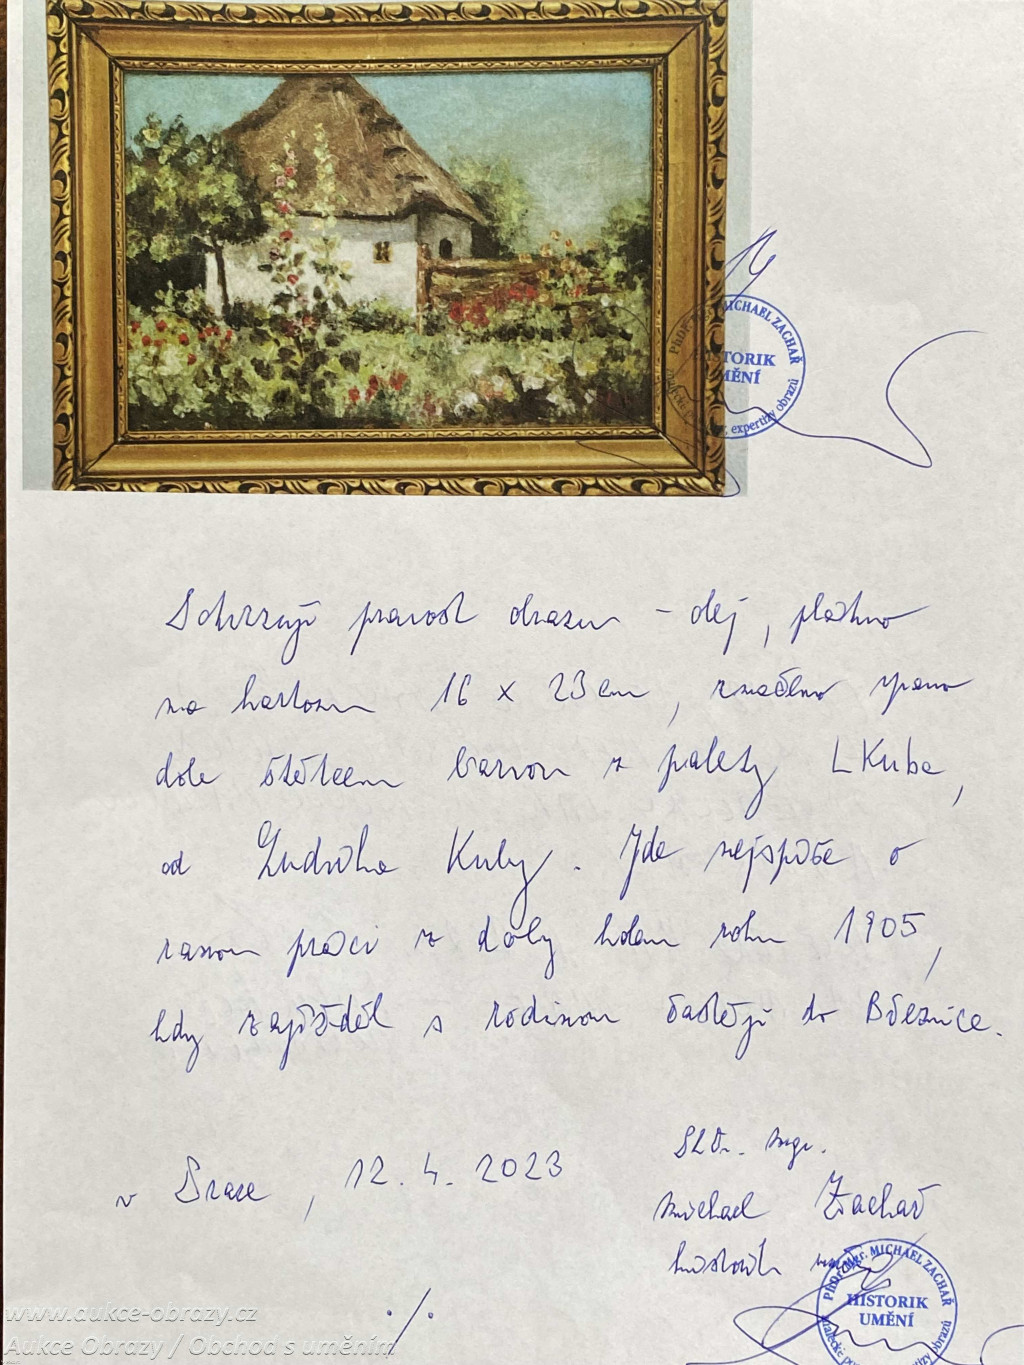 PhDr. Mgr. MICHAEL ZACHAŘ
HISTORIK
UMĚNÍ
znalecké expertizy obrazů
Potvrzuji pravost obrazu - olej, plátno
na kartonu 16 x 23 cm, značeno vpravo
dole štětcem barvou z palety LKuba,
od Ludvíka Kuby. Jde nejspíše o
ranou práci z doby kolem roku 1905,
kdy zajížděl s rodinou častěji do Březnice.
V Praze, 12. 4. 2023
PhDr. Mgr.
Michael Zachař
historik umění
PhDr. Mgr. MICHAEL ZACHAŘ
HISTORIK
UMĚNÍ
./.
www.aukce-obrazy.cz
Aukce Obrazy / Obchod s uměním